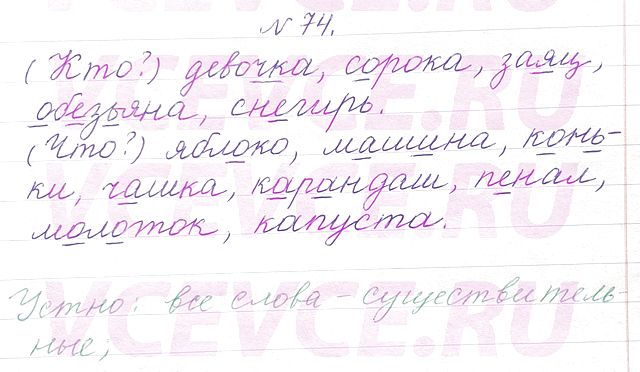 № 74.
(Кто?) девочка, сорока, заяц,
обезьяна, снегирь.
(Что?) яблоко, машина, конь-
ки, чашка, карандаш, пенал,
молоток, капуста.
Устно: все слова – существитель-
ные;
VCEVCE.RU
VCEVCE.RU
VCEVCE.RU